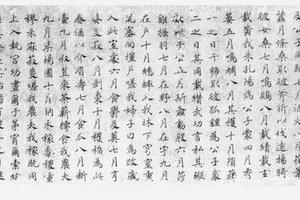 條桑取彼斧斨以伐遠揚猗
彼女桑七月鳴鵙八月載績載玄
載黃我朱孔陽為公子裳四月秀
葽五月鳴蜩八月其穫十月隕蘀
一之日于貉取彼狐貍為公子裘
二之日其同載纘武功言私其豵
獻豜于公五月斯螽動股六月莎
雞振羽七月在野八月在宇九月
在戶十月蟋蟀入我牀下穹窒熏
鼠塞向墐戶嗟我婦子曰為改歲
入此室處六月食鬱及薁七月亨
葵及菽八月剝棗十月穫稻為此
春酒以介眉壽七月食瓜八月斷
壺九月叔苴采荼薪樗食我農夫
九月築場圃十月納禾稼黍稷重
穋禾麻菽麥嗟我農夫我稼既同
上入執宮功晝爾于茅宵爾索綯